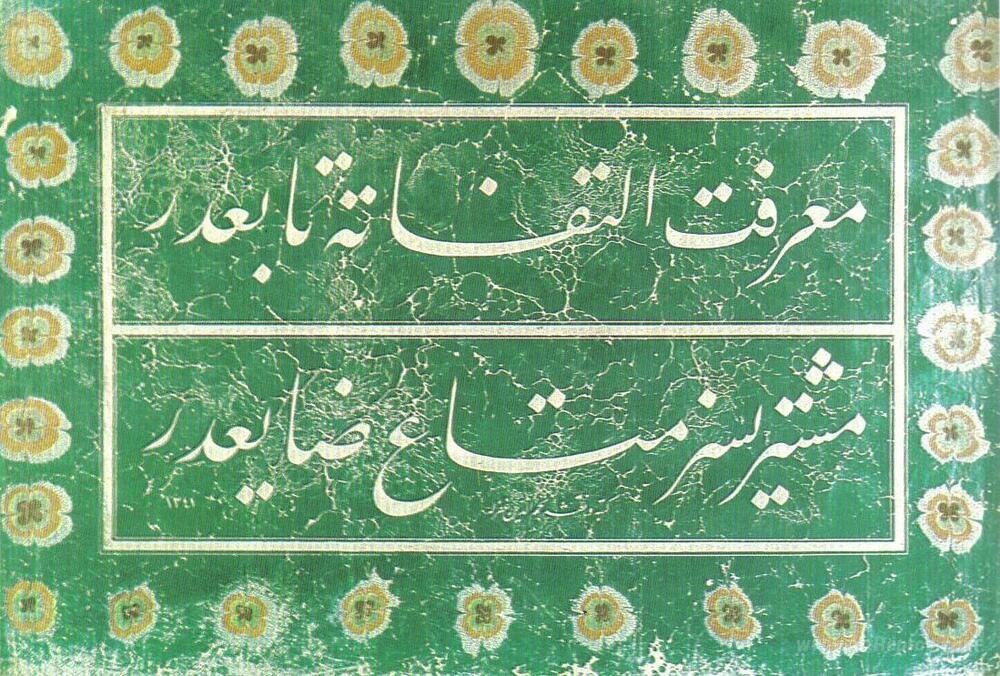 معرفت التفاته تابعدر
مشتریسز متاع ضایعدر
١٣٤١